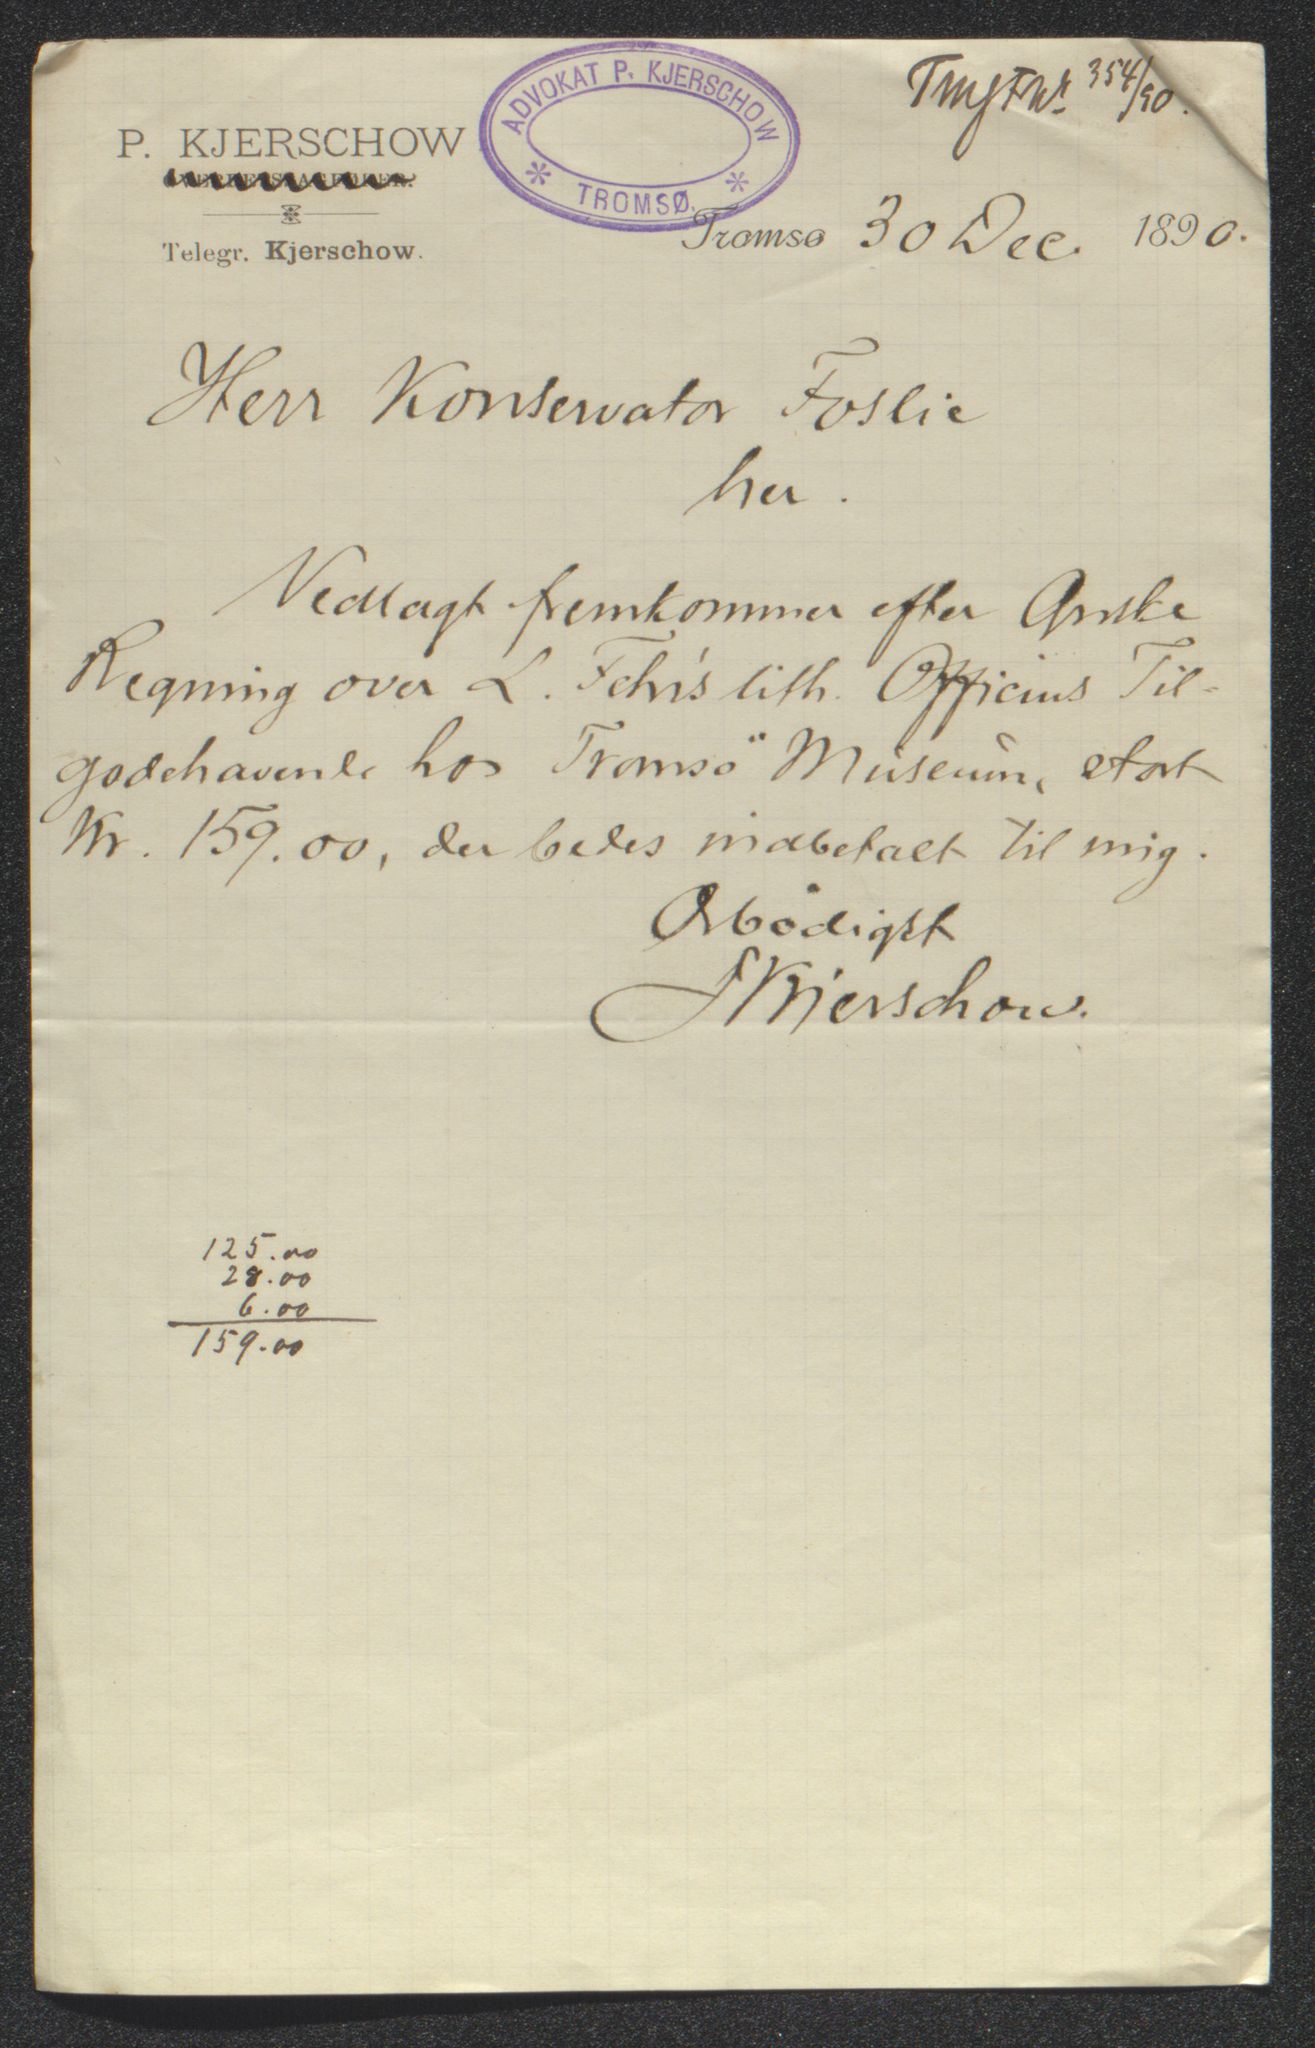 ADVOKAT P. KJERSCHOW
TROMSØ.
354/90.
P. KJERSCHOW
Telegr. Kjerschow.
Tromsø 30 Dec. 1890.
Herr Konservator Foslie
her.
Vedlagt fremkommer efter Ønske
Regning over L. Fehr's lith. Officins Til-
godehavende hos Tromsö Museum, stort
Kr. 159.00, der bedes indbetalt til mig.
Ærbödigst
PKjerschow.
125.00
28.00
6.00
159.00